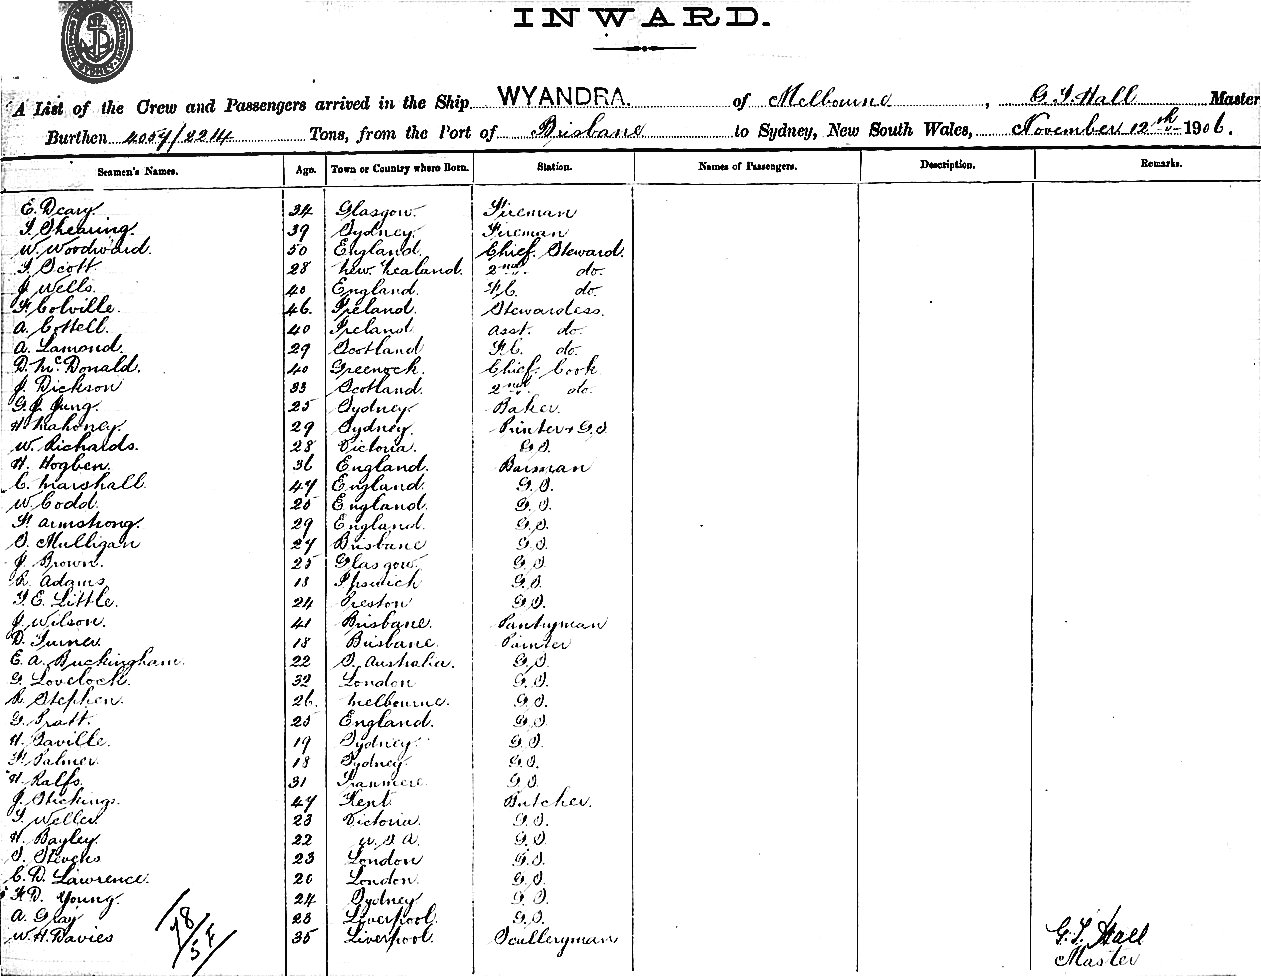 SYDNEY
INWARD.
A List of the Crew and Passengers arrived in the Ship WYANDRA. of Melbourne, G. L. Hall Master
Burthen 4059/2214 Tons, from the Port of Brisbane to Sydney, New South Wales, November 12th 1906.
Seamen's Names. Age. Town or Country where Born. Station. Names of Passengers. Description. Remarks.
E. Deary. 34 Glasgow. Fireman
T. Shearing. 39 Sydney. Fireman
W. Woodward. 50 England. Chief. Steward.
T. Scott. 28 New. Zealand. 2nd. do.
J. Wells. 40 England. F.C. do.
F. Colville. 46. Ireland. Stewardess.
A. Cottell. 40 Ireland Asst. do.
A. Lamond. 29 Scotland F.C. do.
D. McDonald. 40 Greenock. Chief. Cook
J. Dickson 33 Scotland. 2nd. do.
G. J. Jung. 25 Sydney. Baker.
H. Mahoney. 29 Sydney. G.S.
W. Richards. 28 Victoria. G.S.
H. Hogben. 36 England. Barman
C. Marshall. 47 England. G.S.
W. Codd. 25 England. G.S.
F. Armstrong. 29 England. G.S.
S. Mulligan 27 Brisbane G.S.
J. Brown. 25 Glasgow. G.S.
R. Adams 18 Ipswich G.S.
T. E. Little. 24 Preston G.S.
J. Wilson. 41 Brisbane. Pantryman
D. Turner 18 Brisbane. Painter
E. A. Buckingham. 22 S. Australia. G.S.
G. Lovelock. 32 London G.S.
R. Stephen. 26. Melbourne. G.S.
G. Pratt. 25 England. G.S.
H. Saville. 19 Sydney. G.S.
F. Palmer. 18 Sydney. G.S.
H. Ralfs. 31 Tranmere. G.S.
J. Stickings. 47 Kent. Butcher.
T. Weller 23 Victoria. G.S.
H. Bayley. 22 U.S.A. G.S.
S. Stevens 23 London G.S.
C. D. Lawrence. 20 London. G.S.
F. D. Young. 24 Sydney G.S.
A. Gray 23 Liverpool. G.S.
W. H. Davies 35 Liverpool. Sculleryman
G. L. Hall
Master